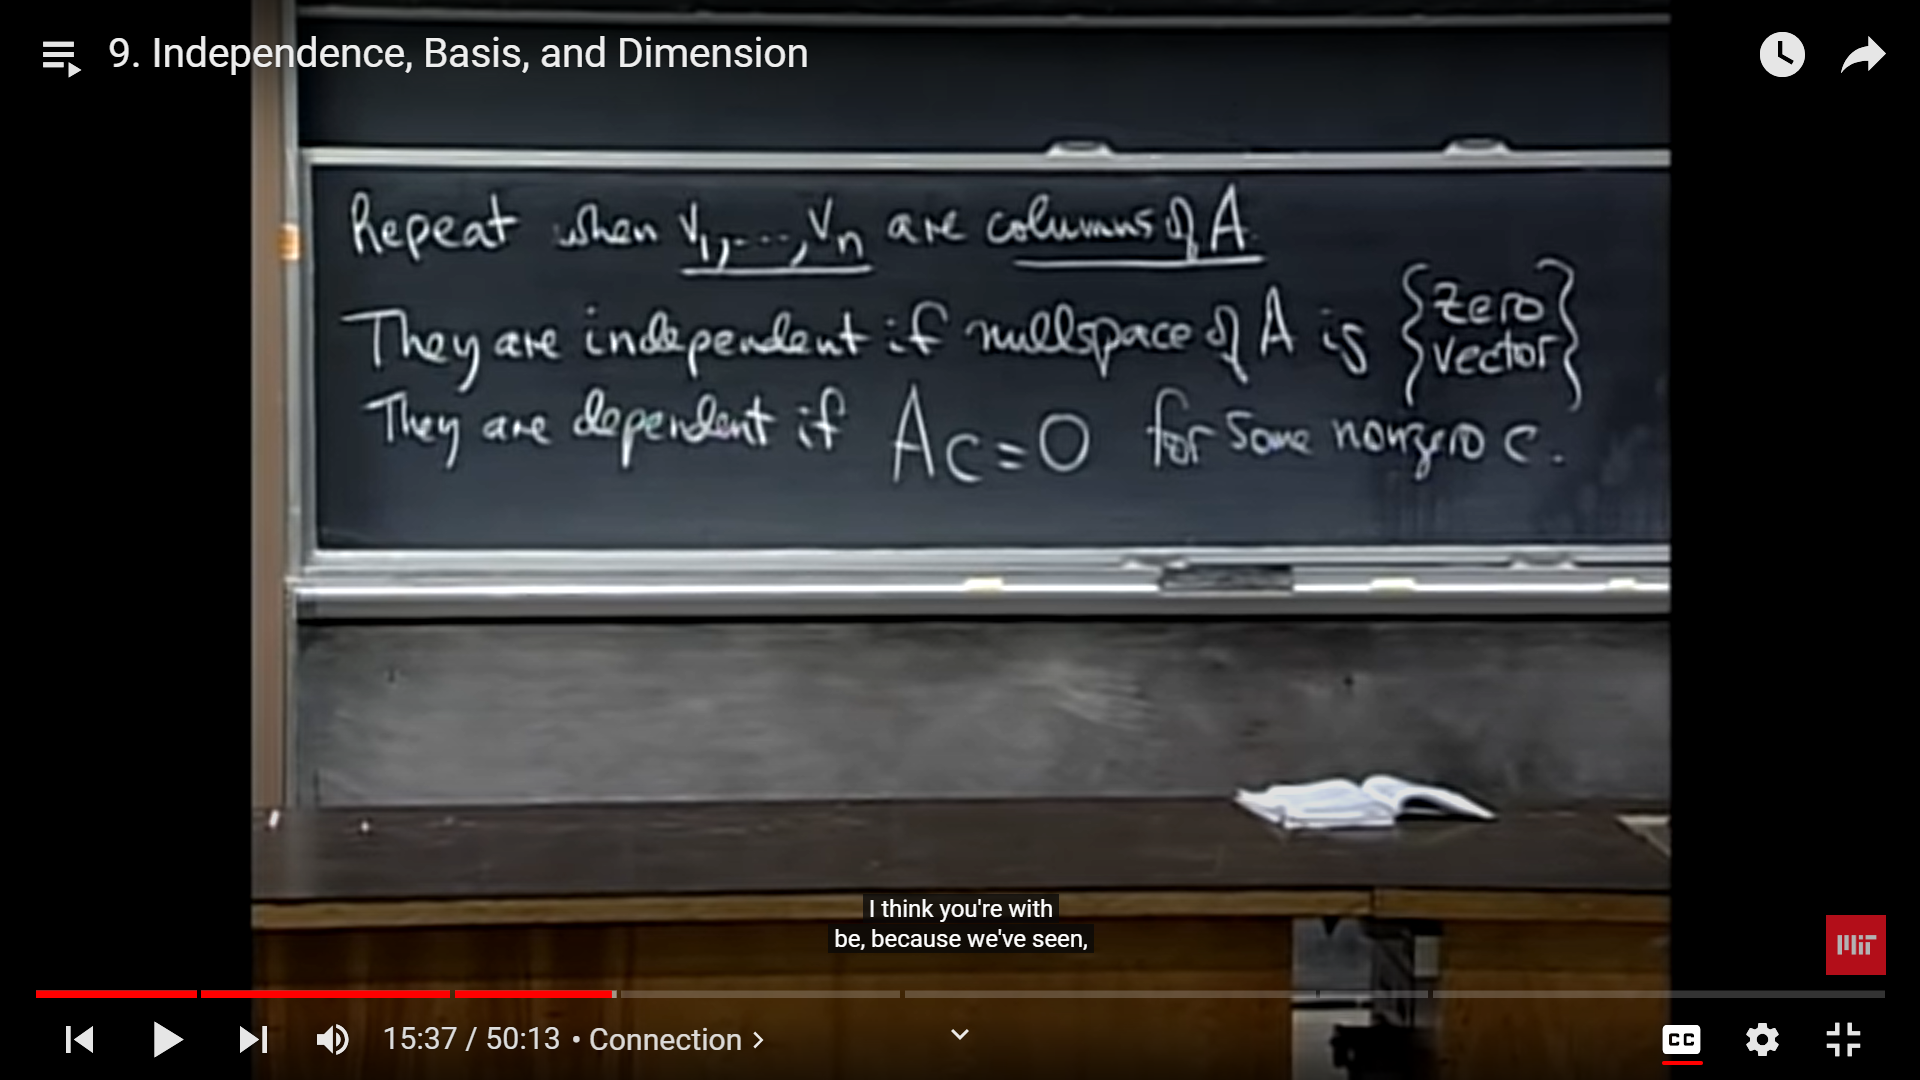 9. Independence, Basis, and Dimension
Repeat when v1, ..., vn are columns of A.
They are independent if nullspace of A is {zero vector}
They are dependent if Ac=0 for some nonzero c.
I think you're with
be, because we've seen,
MIT
15:37 / 50:13 • Connection >
CC